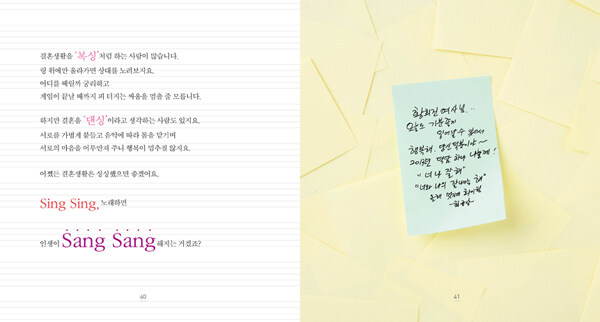 결혼생활을 '복싱'처럼 하는 사람이 많습니다.
링 위에만 올라가면 상대를 노려보지요.
어디를 때릴까 궁리하고
게임이 끝날 때까지 피 터지는 싸움을 멈출 줄 모릅니다.
하지만 결혼을 '댄싱'이라고 생각하는 사람도 있지요.
서로를 가볍게 붙들고 음악에 따라 몸을 맡기며
서로의 마음을 어루만져 주니 행복이 멈추질 않지요.
어쨌든 결혼생활은 싱싱했으면 좋겠어요.
Sing Sing, 노래하면
인생이 Sang Sang해지는 거겠죠?
40
오늘도 기분좋게
행복해.
2013년
"너나 잘해"
41